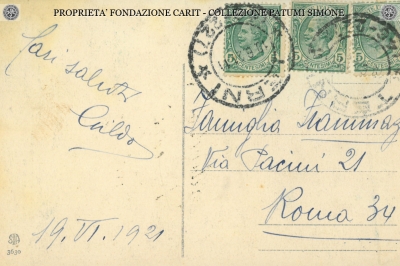 PROPRIETA' FONDAZIONE CARIT - COLLEZIONE PATUMI SIMONE
Cari saluti
5
5
5
Famiglia
Via Pacini 21
Roma 34
19.VI.1921
3630